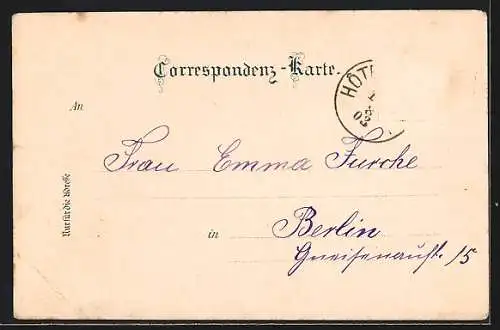 Correspondenz-Karte.
HÔT
02
An
Frau Emma Furche
Nur für die Adresse
in Berlin
Gneisenaustr. 15